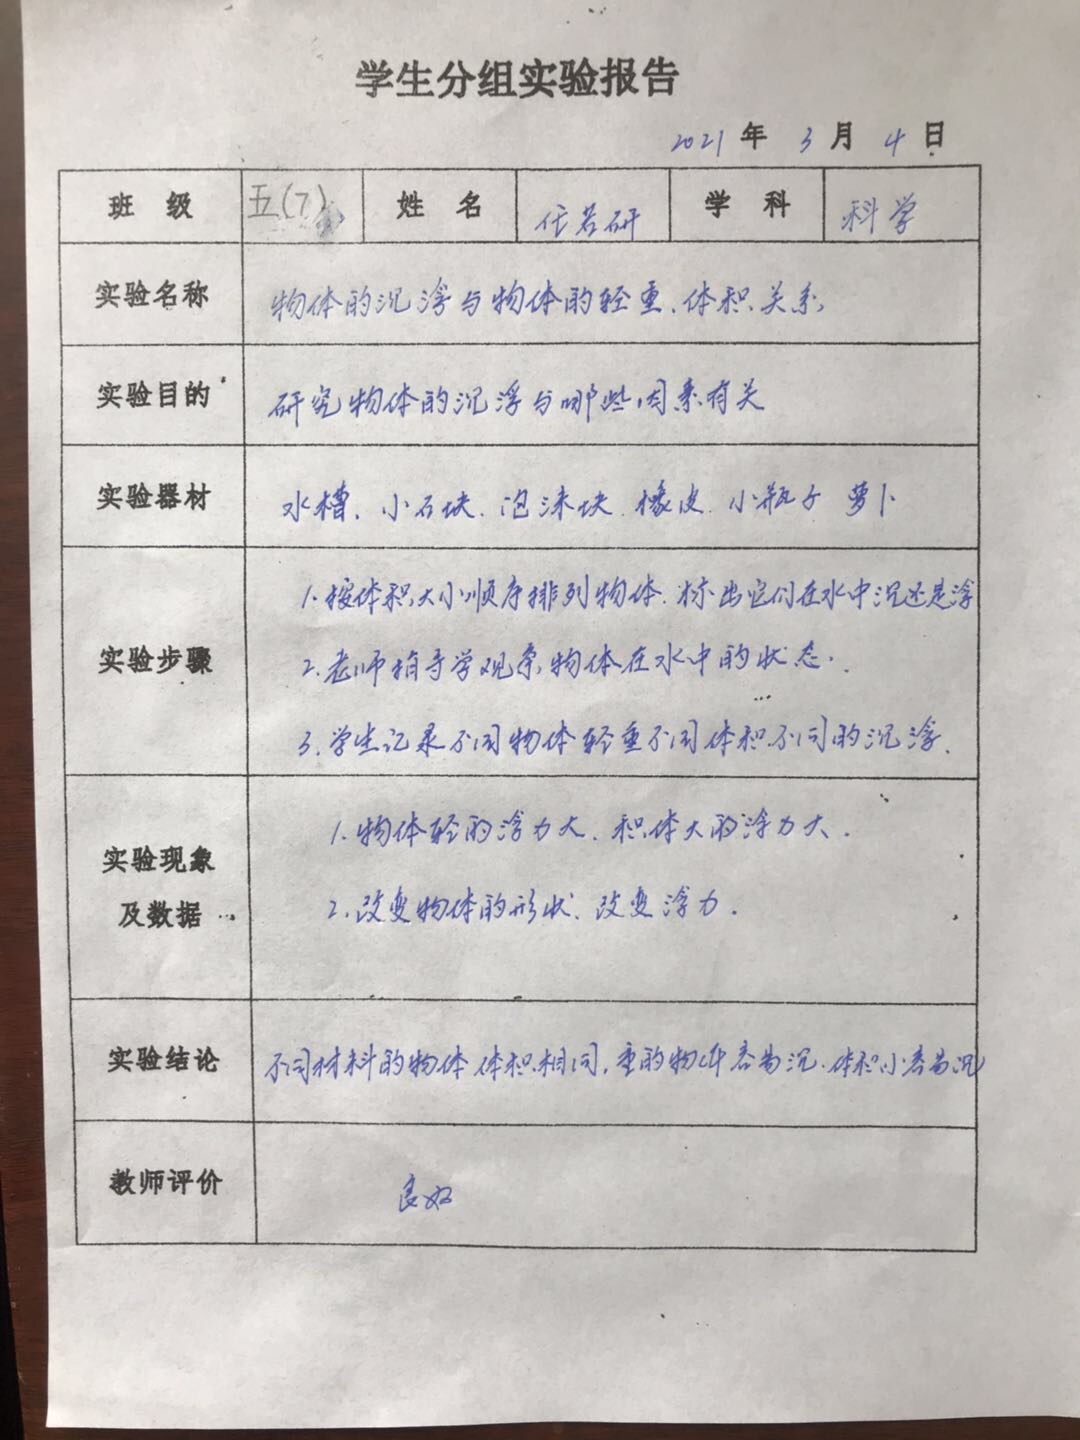 学生分组实验报告
2021 年 3 月 4 日
班 级 五(7) 姓 名 任若研 学 科 科学
实验名称 物体的沉浮与物体的轻重、体积关系
实验目的 研究物体的沉浮与哪些因素有关
实验器材 水槽、小石块、泡沫块、橡皮、小瓶子 萝卜
1.按体积大小顺序排列物体、标出它们在水中沉还是浮
实验步骤 2.老师指导学观察物体在水中的状态.
3.学生记录不同物体轻重不同体积不同的沉浮.
1.物体轻的浮力大、积体大的浮力大.
实验现象
及数据 2.改变物体的形状、改变浮力.
实验结论 不同材料的物体 体积相同,重的物体容易沉.体积小容易沉
教师评价 良好